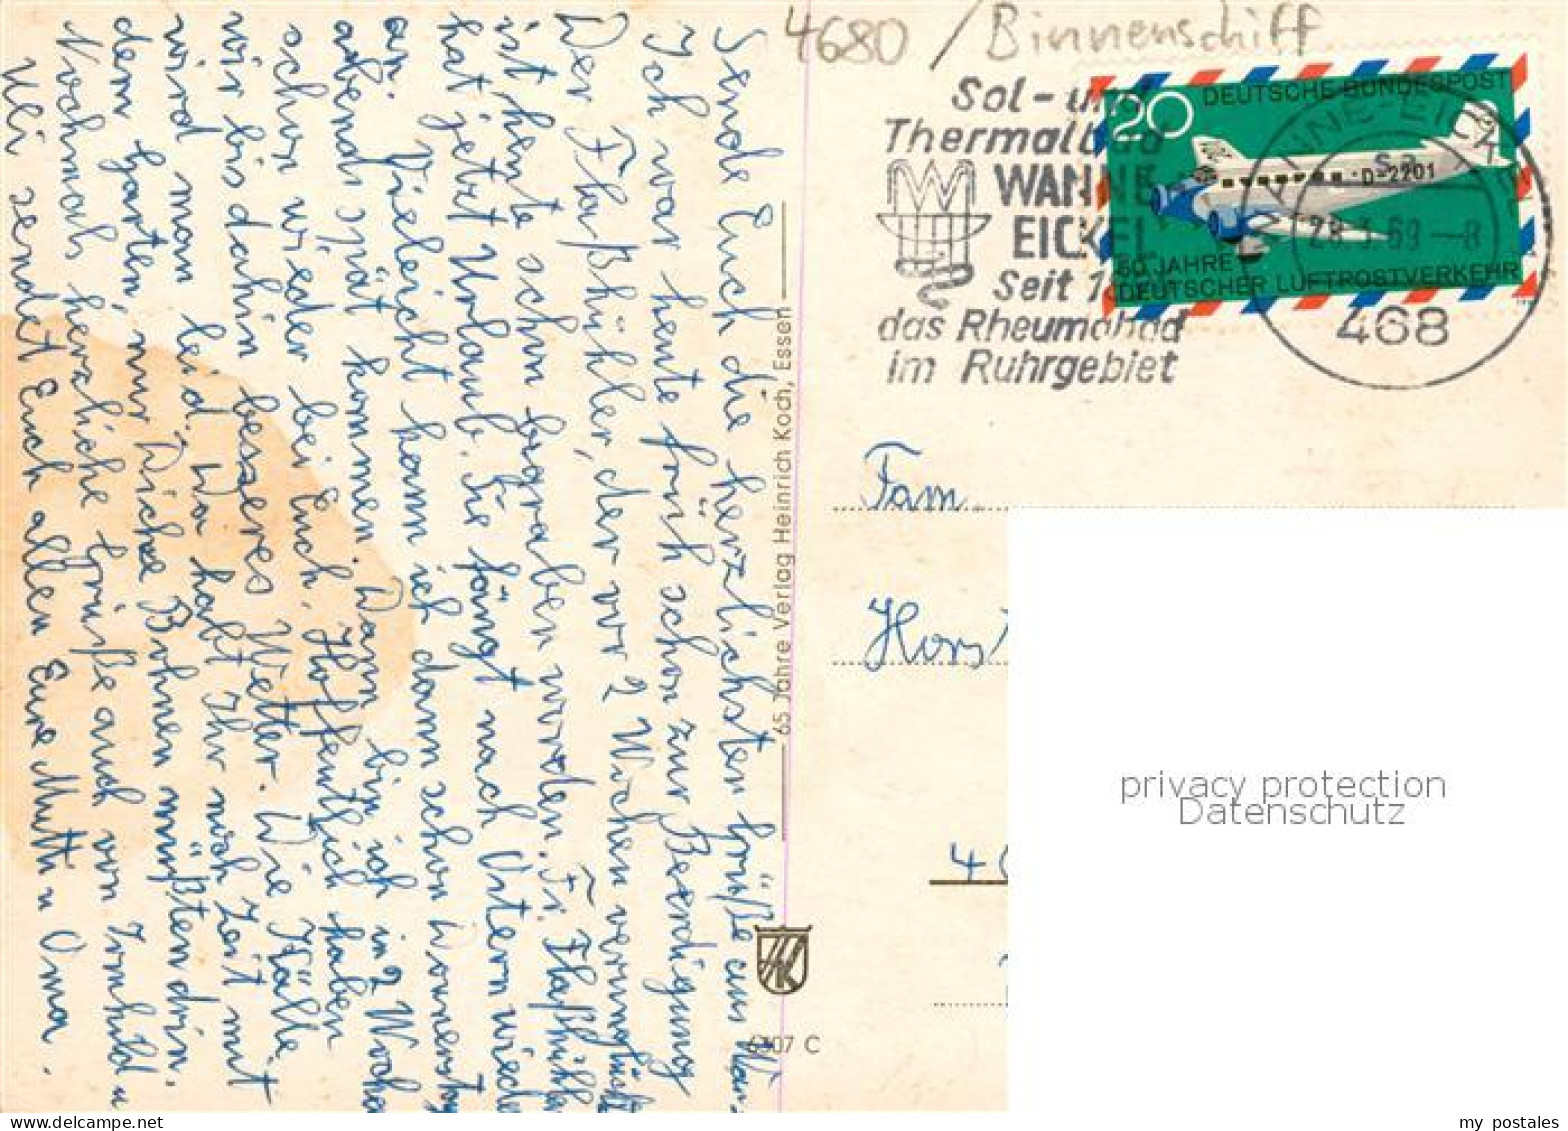 4680 / Binnenschiff
Sol- und
Thermalbad
WANNE
EICKEL
Seit
das Rheumabad
im Ruhrgebiet
20
DEUTSCHE BUNDESPOST
D-2201
50 JAHRE
DEUTSCHER LUFTPOSTVERKEHR
WANNE-EICKEL
69 -8
468
Sende Euch die herzlichsten Grüße aus
Ich war heute früh schon zur Beerdigung
Der Flaßhühler, der vor 2 Wochen verunglückt
ist heute schon begraben worden. Fr. Flaßhühler
hat jetzt Urlaub. Sie fängt nach Ostern wieder
an. Vieleicht kann ich dann schon Donnerstag
abend spät kommen. Dann bin ich in 2 Wochen
schon wieder bei Euch. Hoffentlich haben
wir bis dahin besseres Wetter. Die Kälte
wird man leid. Da habt Ihr noch Zeit mit
dem Garten, nur Dicke Bohnen müßten drin.
Nochmals herzliche Grüße auch von Irmhild u
Uli sendet Euch allen Eure Mutti u Oma.
65 Jahre Verlag Heinrich Koch, Essen
HK
6307 C
Fam.
Horst
privacy protection
Datenschutz
my postales